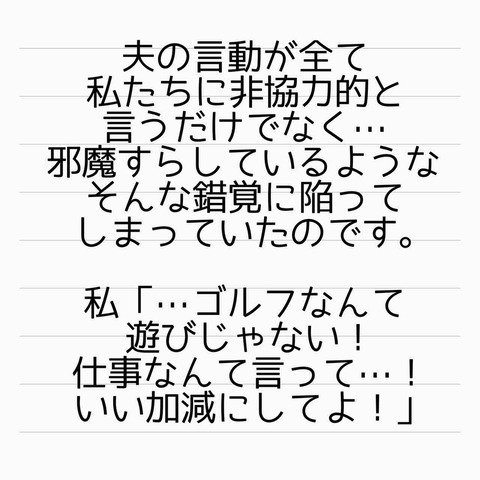 夫の言動が全て
私たちに非協力的と
言うだけでなく…
邪魔すらしているような
そんな錯覚に陥って
しまっていたのです。
私「…ゴルフなんて
遊びじゃない！
仕事なんて言って…！
いい加減にしてよ！」